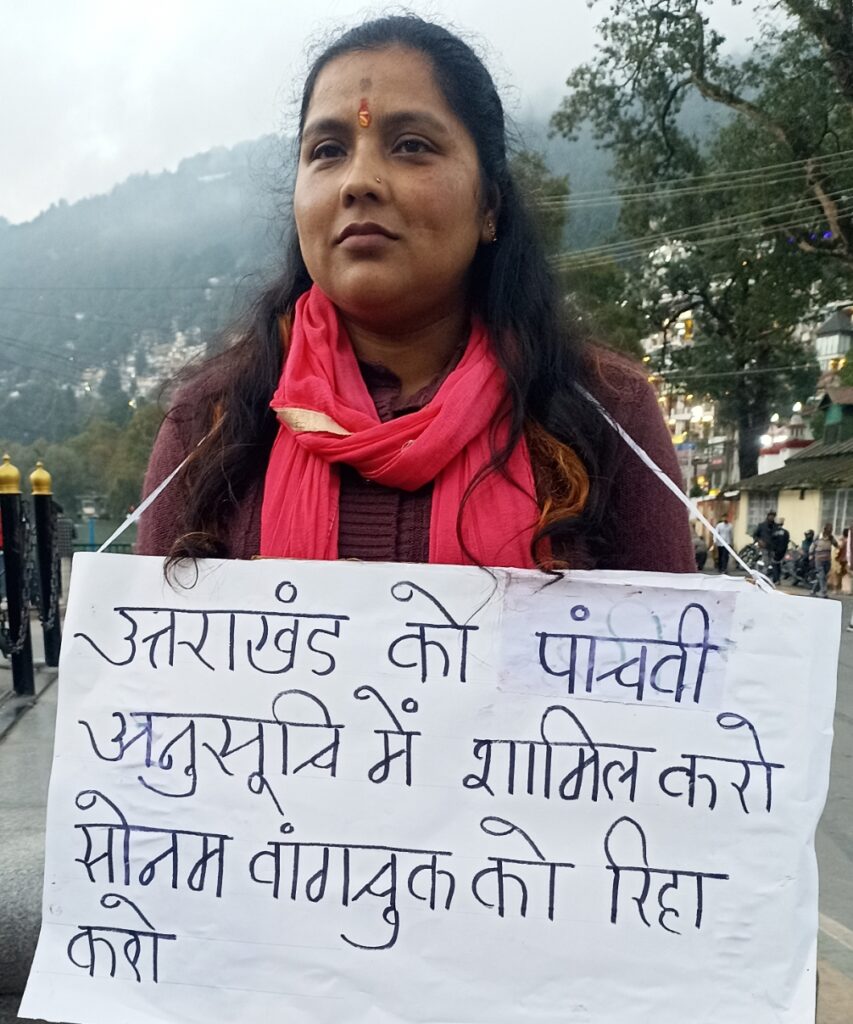 उत्तराखंड को पांचवी
अनुसूचि में शामिल करो
सोनम वांगचुक को रिहा
करो